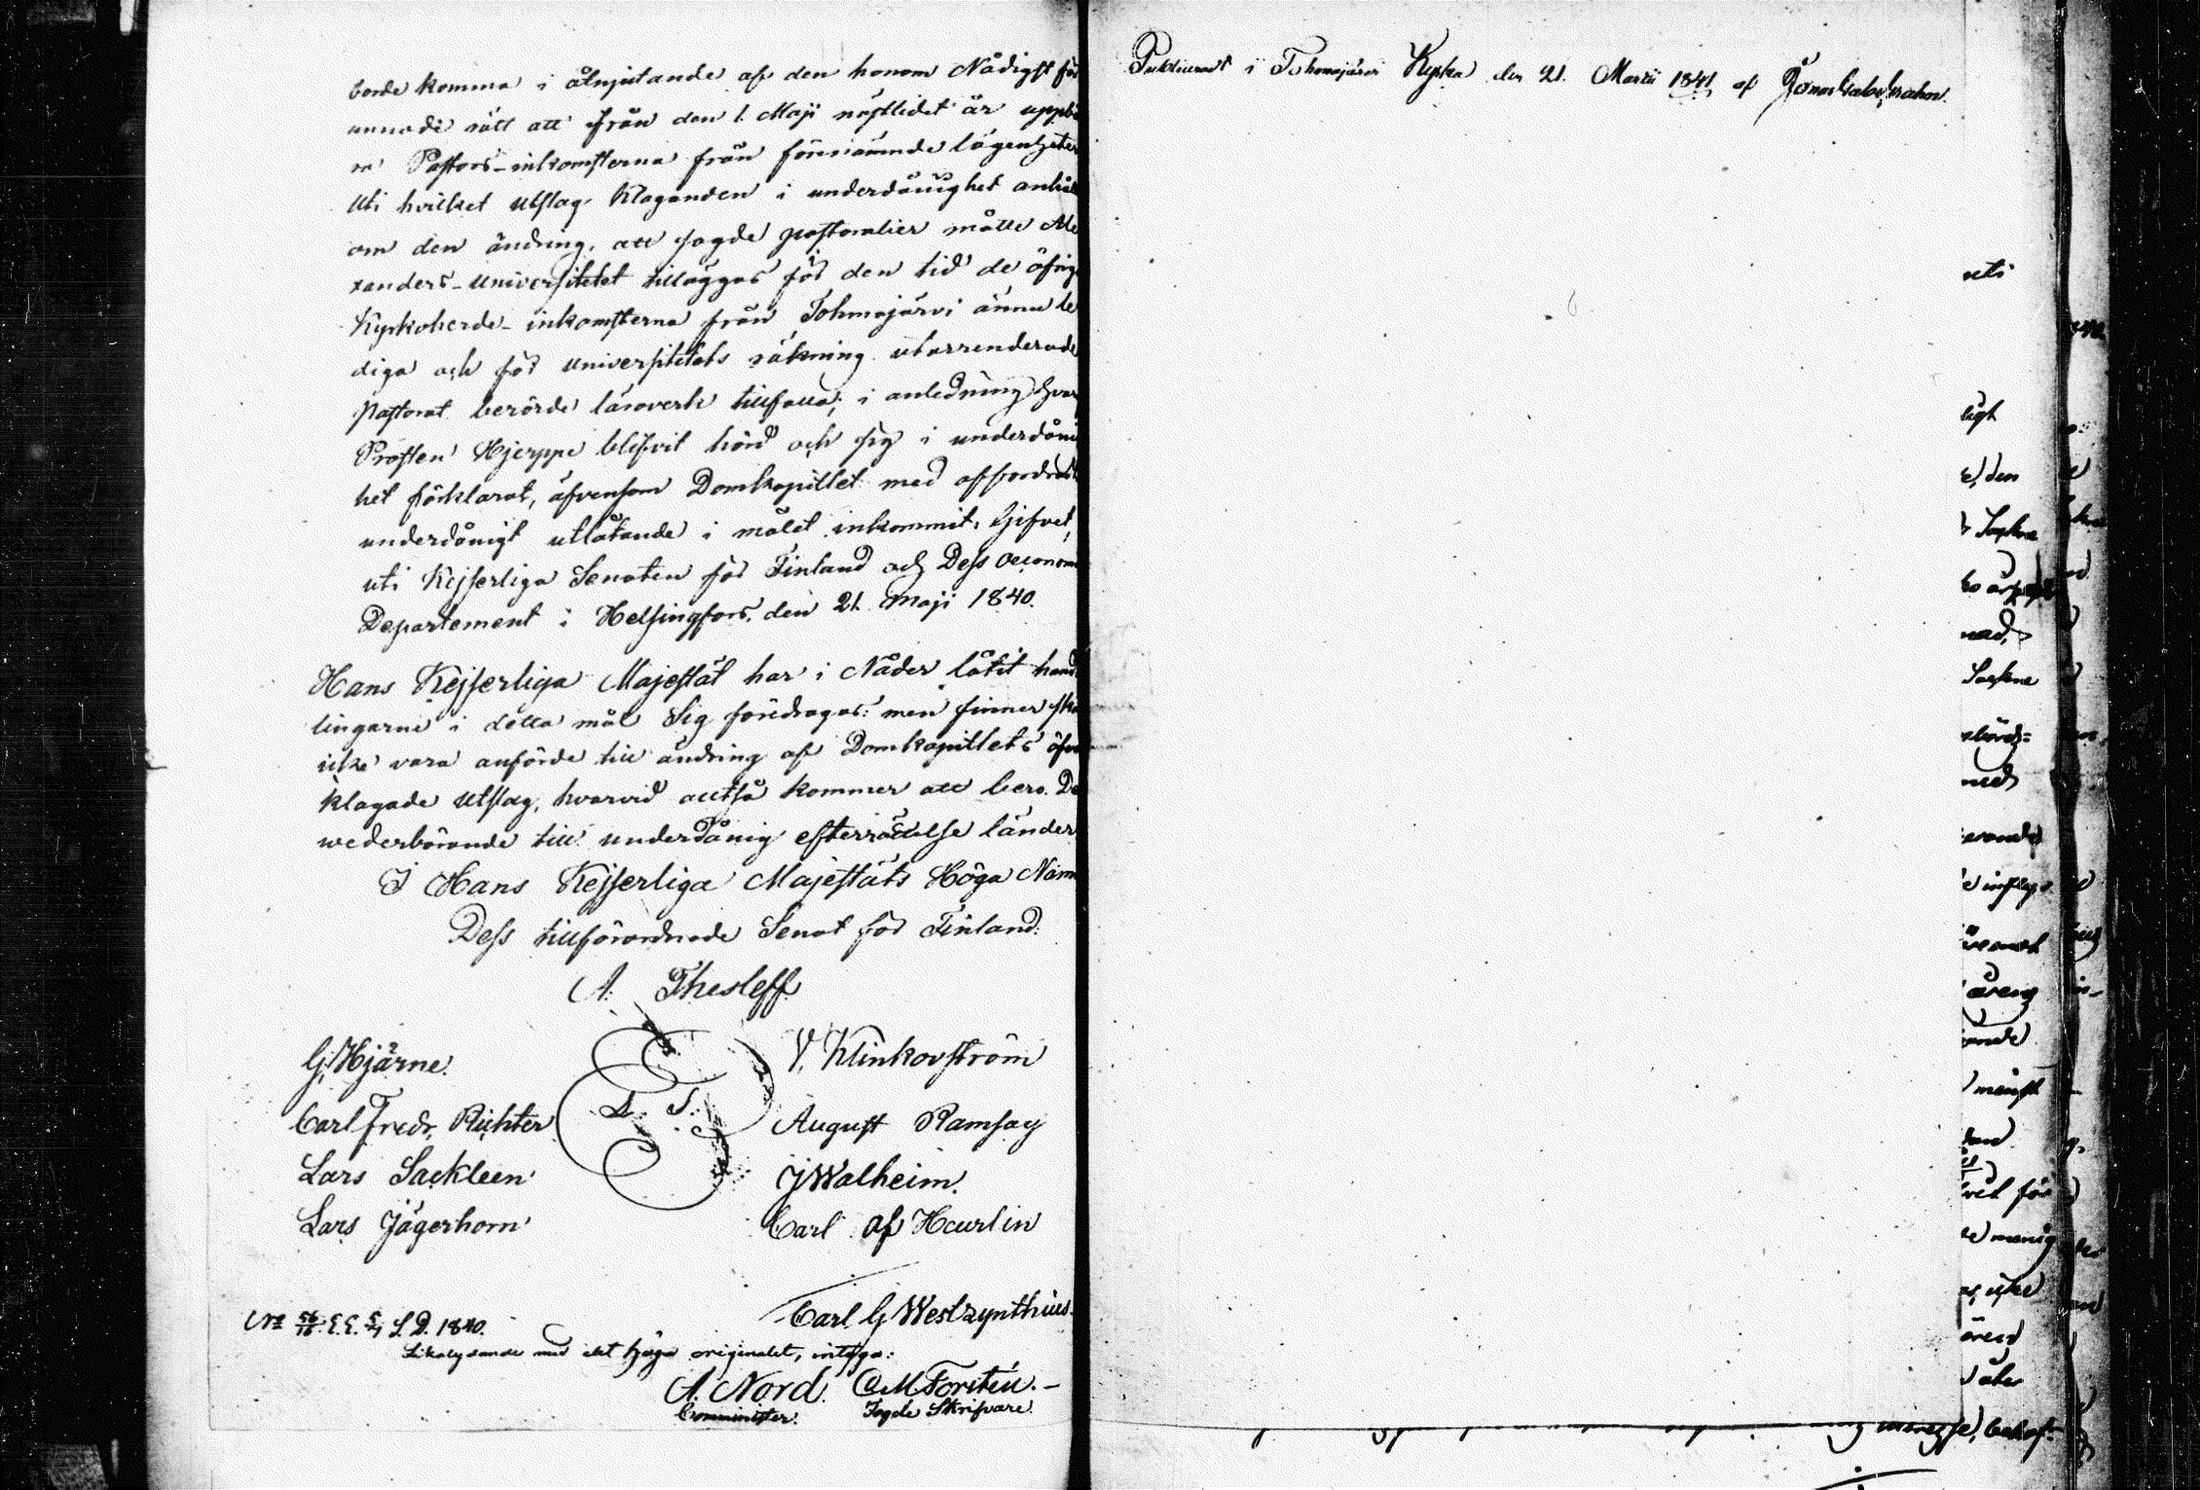 borde komma i åtnjutande af den honom Nådigst för
unnade rätt att från den 1. Maji nästlidet år uppbä
ra Pastors-inkomsterna från förenämnde lägenheter
Uti hvilket utslag Klaganden i underdånighet anhål
om den ändring, att sagde pastoralier måtte Ale
xanders-Universitetet tilläggas för den tid de öfrig
Kyrkoherde-inkomsterna från Tohmajärvi ännu le
diga och för universitetets räkning utarrenderade
Pastorat berörde läroverk tillfalla; i anledning hvar
Prosten Hjerppe blifvit hörd och sig i underdåni
het förklarat, äfvensom Domkapitlet med affordradt
underdånigt utlåtande i målet inkommit. Gifvet,
uti Kejserliga Senaten för Finland och Dess Oeconomi
Departement i Helsingfors, den 21. Maji 1840.
Hans Kejserliga Majestät har i Nåder låtit hand
lingarne i detta mål Sig föredragas: men finner skä
icke vara anförde till ändring af Domkapitlets öfver
klagade Utslag, hvarvid alltså kommer att bero. De
wederbörande till underdånig efterrättelse länder
I Hans Kejserliga Majestäts Höga Namn
Dess tillförordnade Senat för Finland:
A. Thesleff.
G. Hjärne. V. Klinkovström
L. S.
Carl Fredr. Richter August Ramsay
Lars Sackleen J Walheim.
Lars Jägerhorn Carl af Haurlin
Carl G Westzynthius.
S. D. 1840.
Likalydande med det höga originalet, intyga:
A. Nord. C M Forstén.-
Comminister. Fogde Skrifvare.
Publiceradt i Tohmajärvi Kyrka den 21. Martii 1841 af
uti
den
Sockne
Sockne
med
för
icke